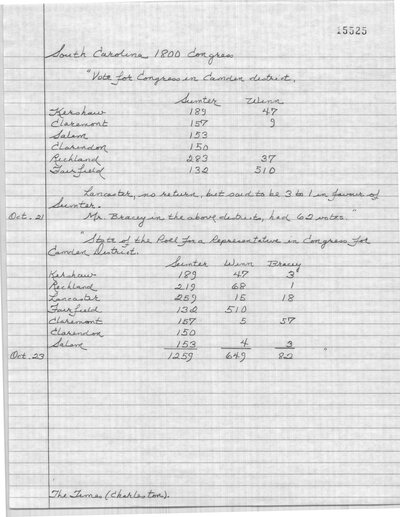 15525
South Carolina 1800 Congress
"Vote for Congress in Camden district.
Sumter Winn
Kershaw 189 47
Claremont 157 9
Salem 153
Clarendon 150
Richland 283 37
Fairfield 132 510
Lancaster, no return, but said to be 3 to 1 in favour of
Sumter.
Oct. 21 Mr. Bracey in the above districts, had 62 votes."
"State of the Poll for a Representative in Congress for
Camden District.
Sumter Winn Bracey
Kershaw 189 47 3
Richland 219 68 1
Lancaster 259 15 18
Fairfield 132 510
Claremont 157 5 57
Clarendon 150
Salem 153 4 3
Oct. 23 1259 649 82 "
The Times (Charleston).